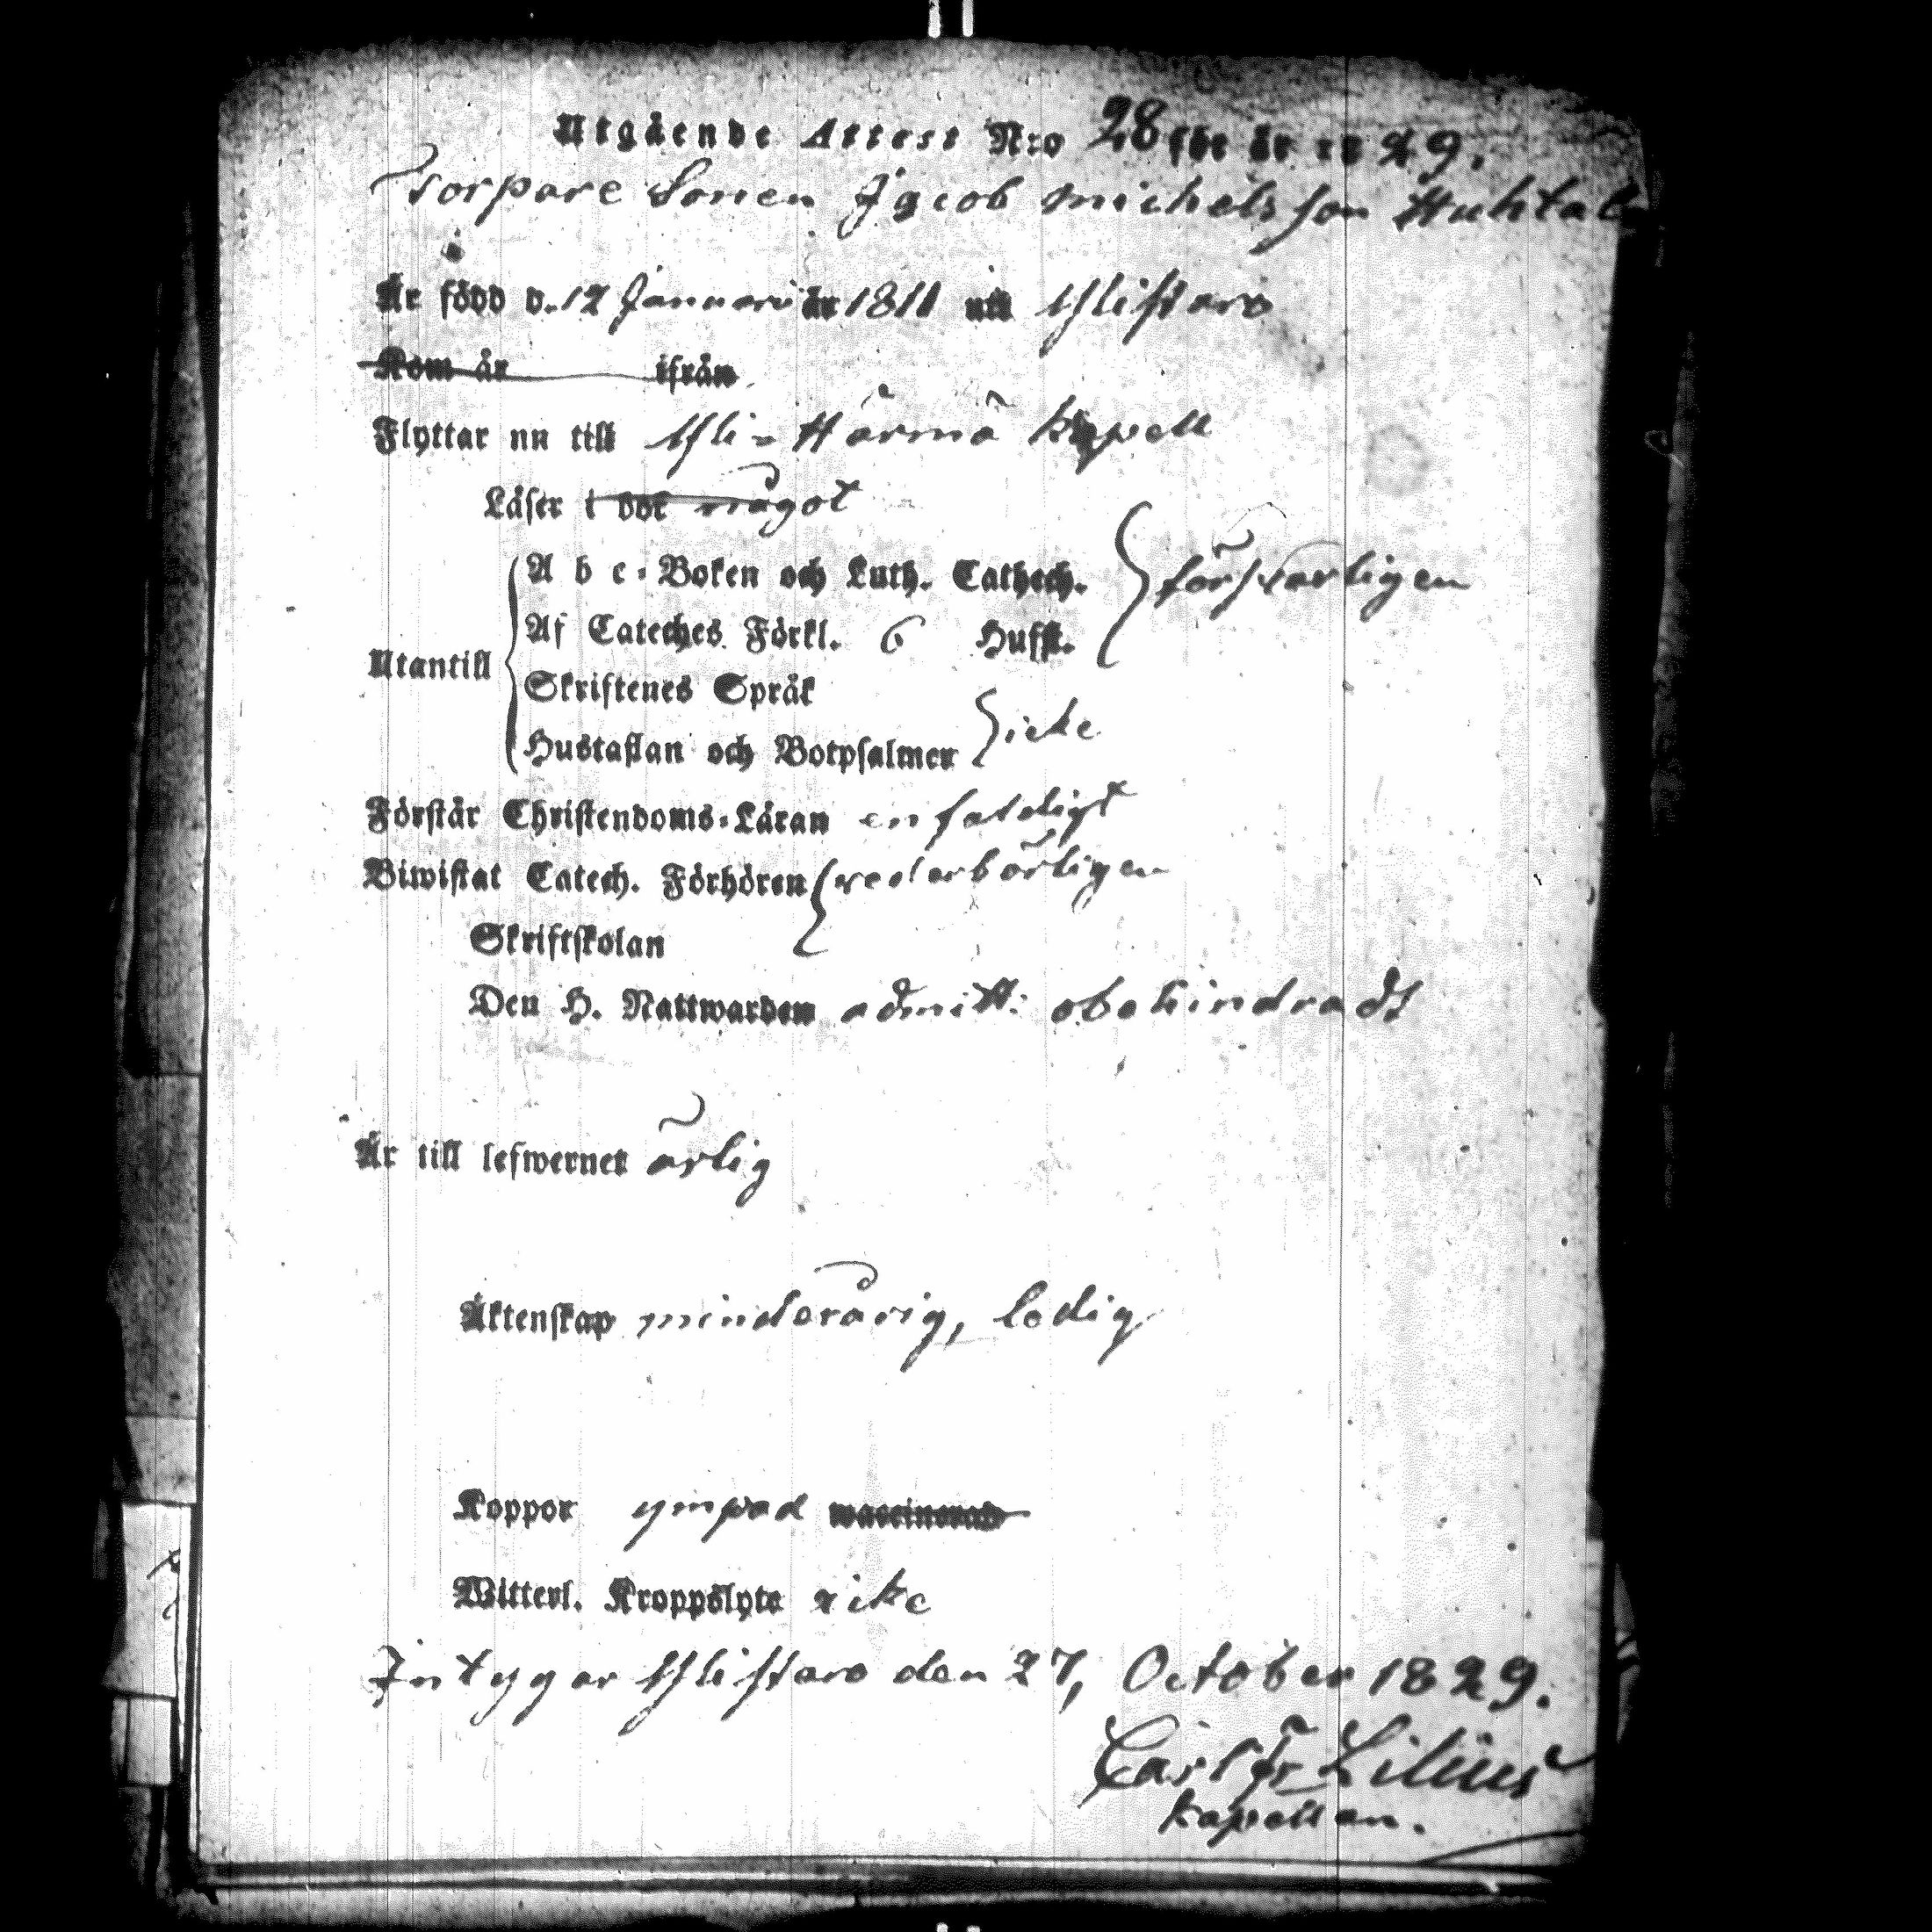 Utgående Attest N:o 28 för år 1829.
Torpare Sonen Jacob Michelsson Huhtala
Är född d. 12 Januari år 1811 uti Ylistaro
Kom år ifrån
Flyttar nu till Yli-Härmä Kapell
Läser i bok något
A b c-Boken och Luth. Cathech. försvarligen
Af Cateches Förkl. 6 Hufst.
Utantill
Skriftenes Språk
Hustaflan och Botpsalmer icke
Förstår Christendoms-Läran enfaldigt
Biwistat Catech. Förhören vederbörligen
Skriftskolan
Den H. Nattwarden admitt: obehindradt
Är till lefwernet ärlig
Äktenskap minderårig, ledig
Koppor ympad waccinerad
Witterl. Kroppslyte icke
Intygar Ylistaro den 27, October 1829.
Carl Fr Lilius
Kapellan.